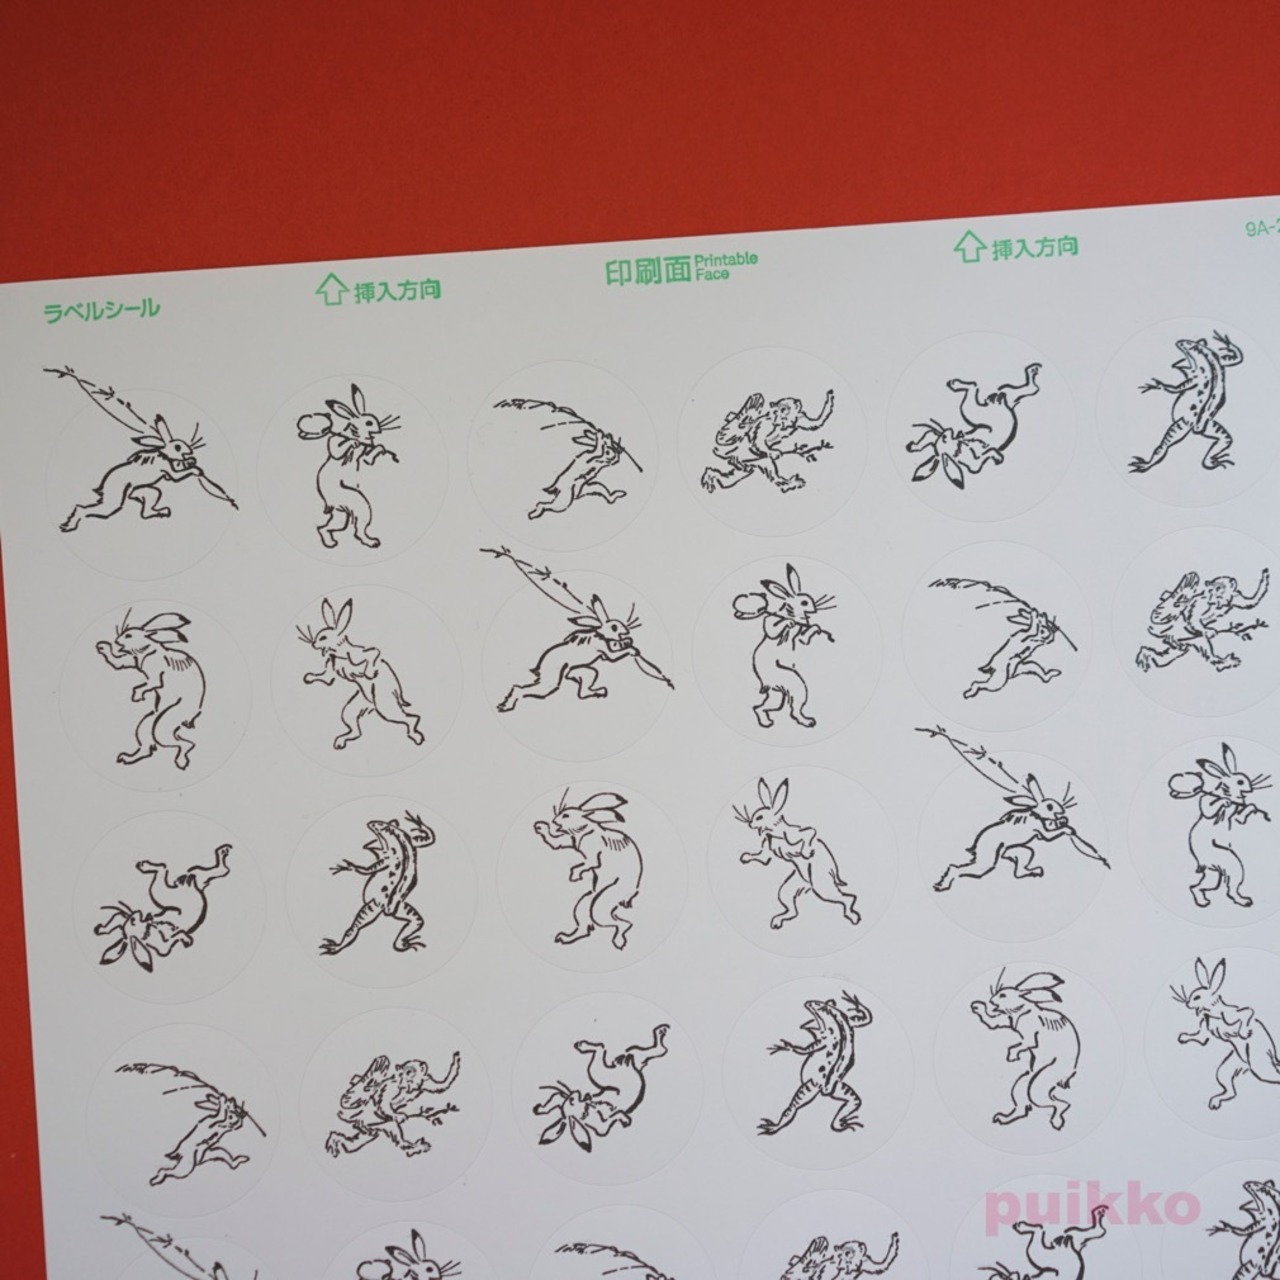 ラベルシール
挿入方向
印刷面 Printable Face
挿入方向
9A-2
puikko